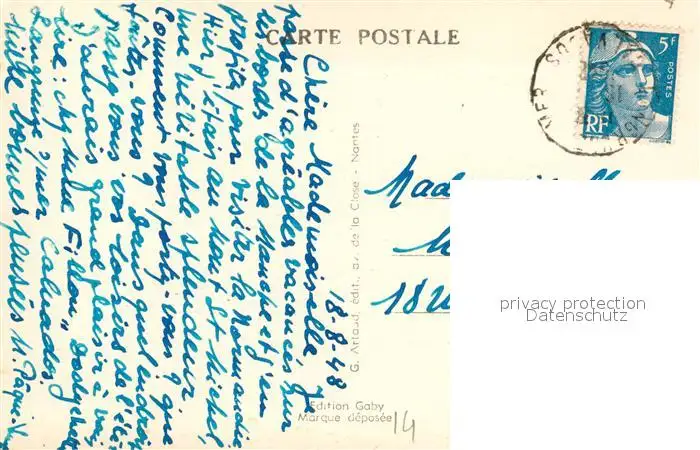 CARTE POSTALE
18-8-48
Chère Mademoiselle, Je
passe d'agréables vacances sur
les bords de la Manche et j'en
profite pour visiter la Normandie
Hier j'étais au Mont St Michel,
une véritable splendeur
Comment vous portez-vous ? que
faites-vous ? Dans quel endroit
passez-vous vos loisirs de l'été
J'aurais grand plaisir à vous
lire: chez Mme Fillon
Langrune s/mer Calvados.
Mille bonnes pensées M.
G. Artaud, édit., av. de la Close - Nantes
Edition Gaby
Marque déposée
14
5F
POSTES
RF
18
privacy protection
Datenschutz